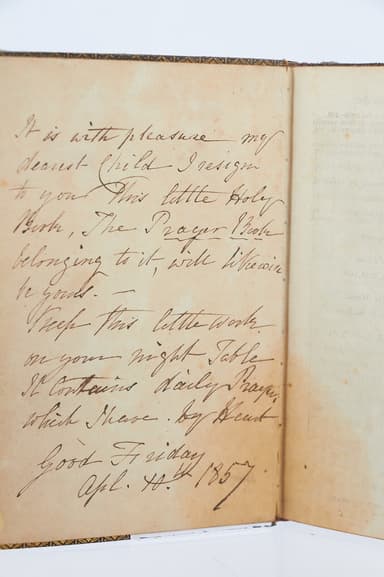 It is with pleasure my
dearest Child I resign
to you This little Holy
Book, The Prayer Book
belonging to it, will likewise
be yours. —
Keep this little work
on your night Table.
It Contains daily Prayers
which I have by Heart
Good Friday
Apl. 10th 1857